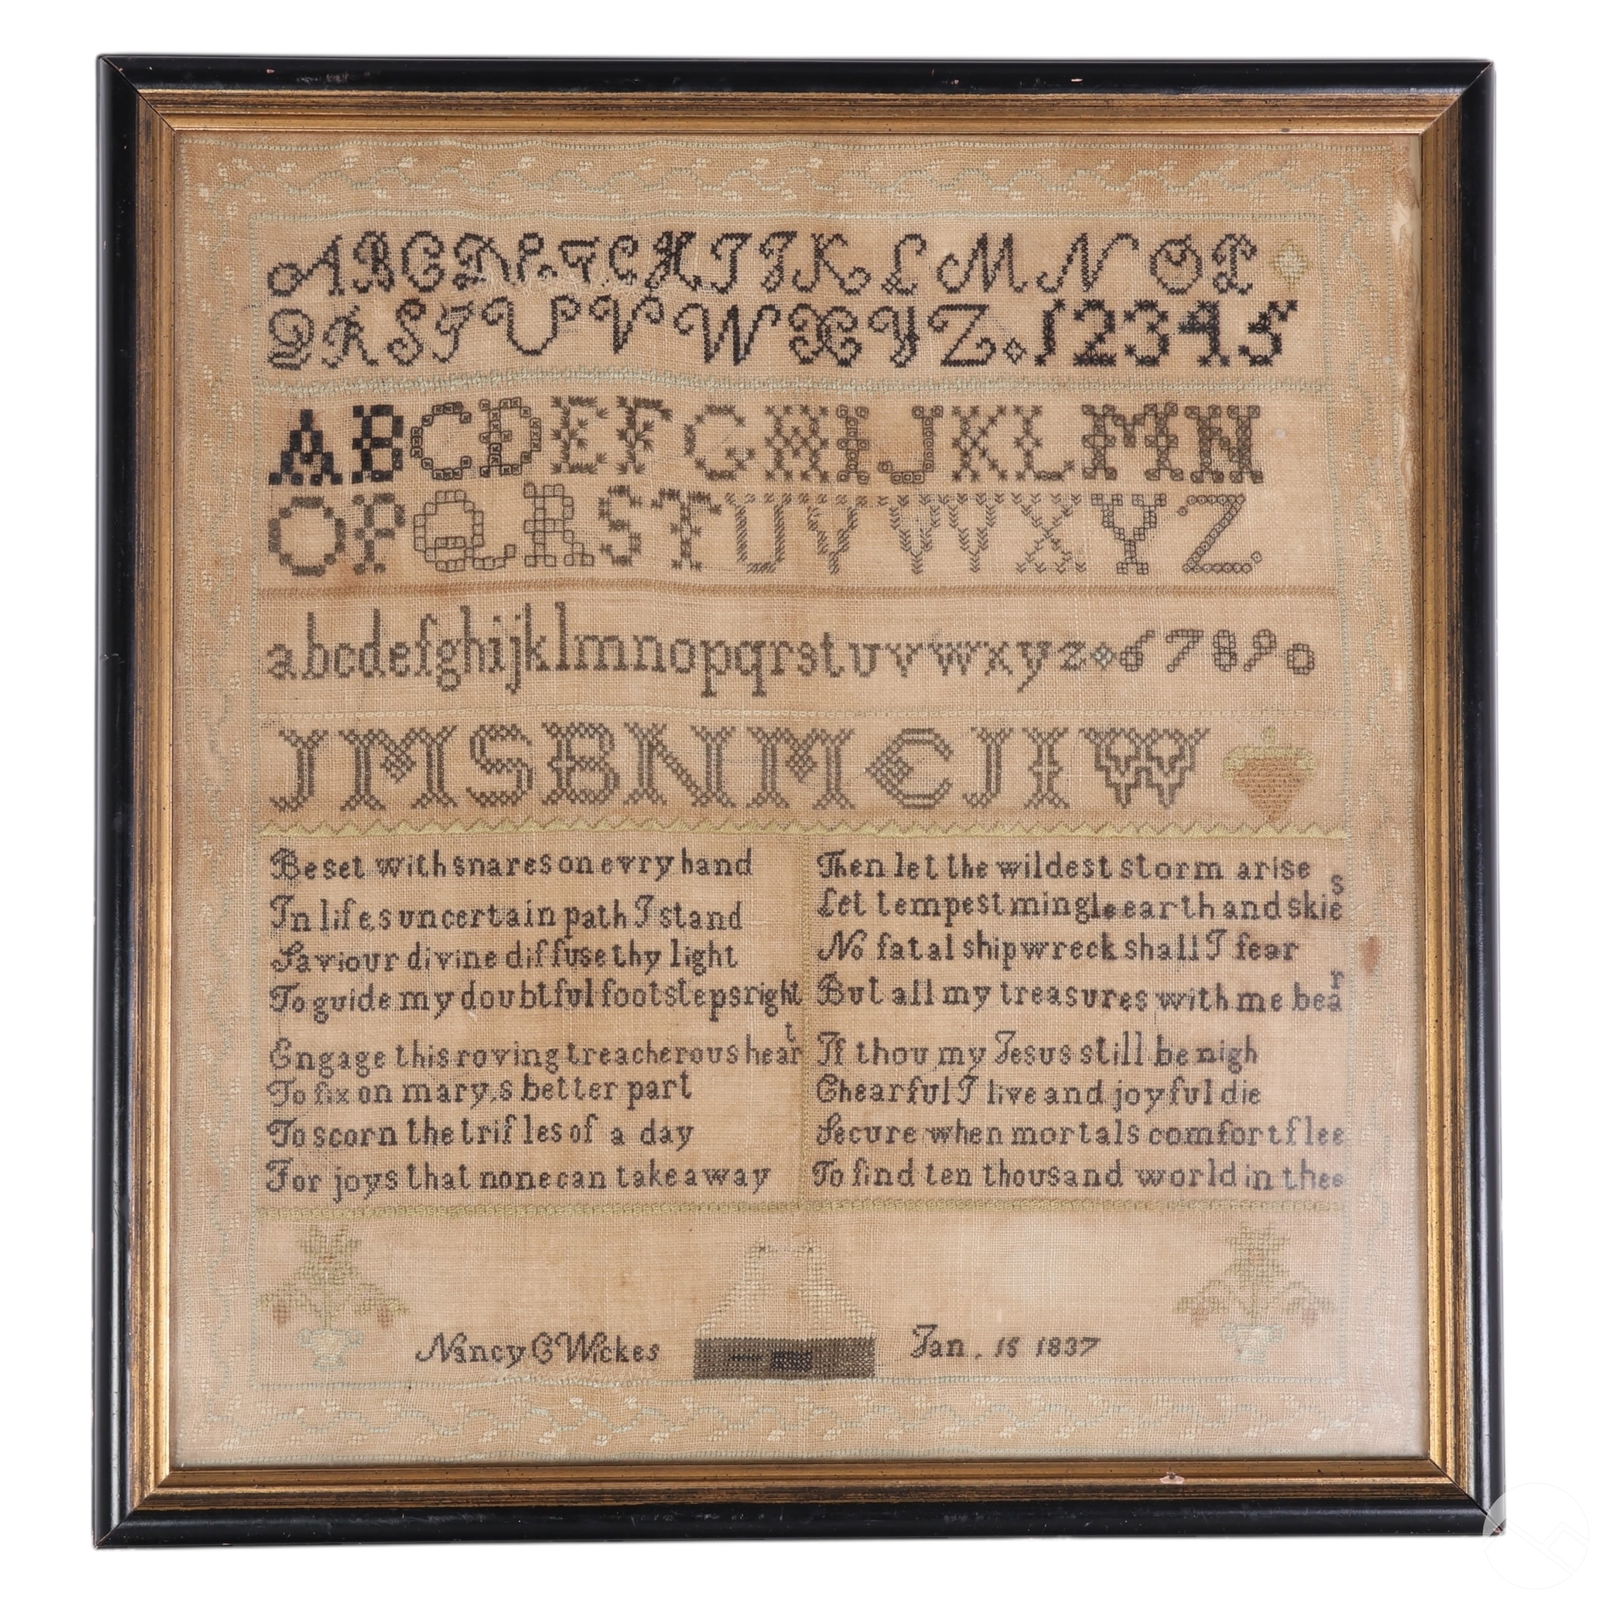 A B C D E F G H I J K L M N O P
Q R S T U V W X Y Z 1 2 3 4 5
A B C D E F G H I J K L M N
O P Q R S T U V W X Y Z.
a b c d e f g h i j k l m n o p q r s t u v w x y z 6 7 8 9 0
J M S B N M C J I W
Beset with snares on evry hand
In life,s uncertain path I stand
Saviour divine diffuse thy light
To guide my doubtful footsteps right
Engage this roving treacherous heart
To fix on mary,s better part
To scorn the trifles of a day
For joys that none can take away
Then let the wildest storm arise
Let tempest mingle earth and skies
No fatal shipwreck shall I fear
But all my treasures with me bear
If thou my Jesus still be nigh
Chearful I live and joyful die
Secure when mortals comfort flee
To find ten thousand world in thee
Nancy C Wickes
Jan. 15 1837